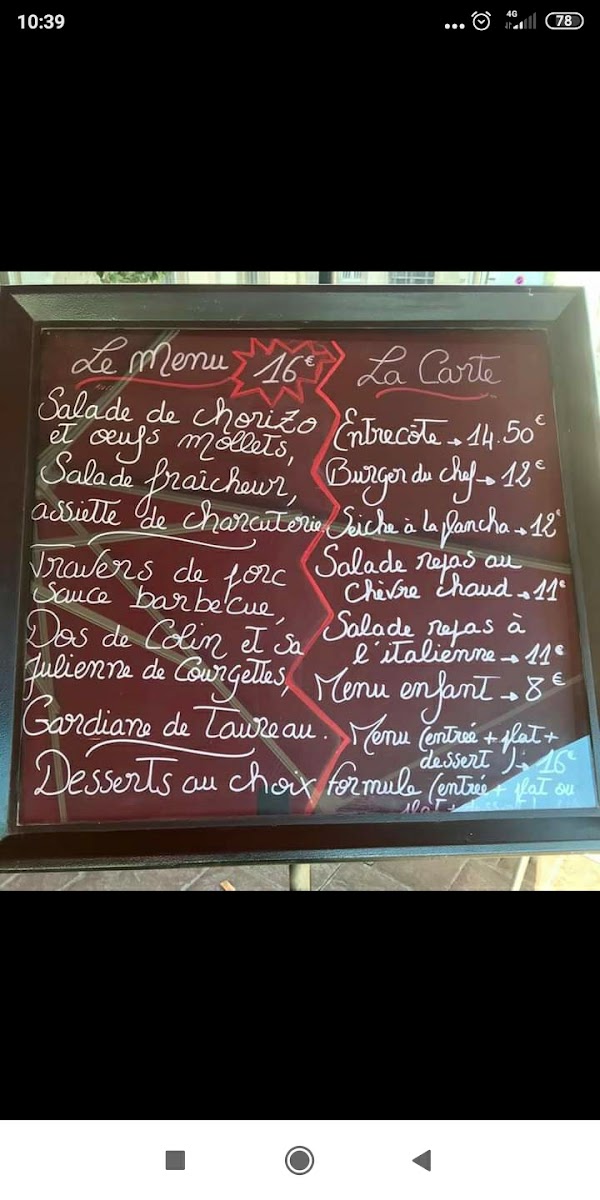 10:39
4G
78
Le Menu 16€
Salade de chorizo
et œufs mollets,
Salade fraîcheur,
assiette de charcuterie
Travers de porc
sauce barbecue,
Dos de Colin et sa
Julienne de Courgettes,
Gardiane de Taureau.
Desserts au choix
La Carte
Entrecôte → 14.50€
Burger du chef → 12€
Seiche à la plancha → 12€
Salade repas au
chèvre chaud → 11€
Salade repas à
l'italienne → 11€
Menu enfant → 8€
Menu (entrée + plat +
dessert) → 16€
formule (entrée + plat ou
plat +